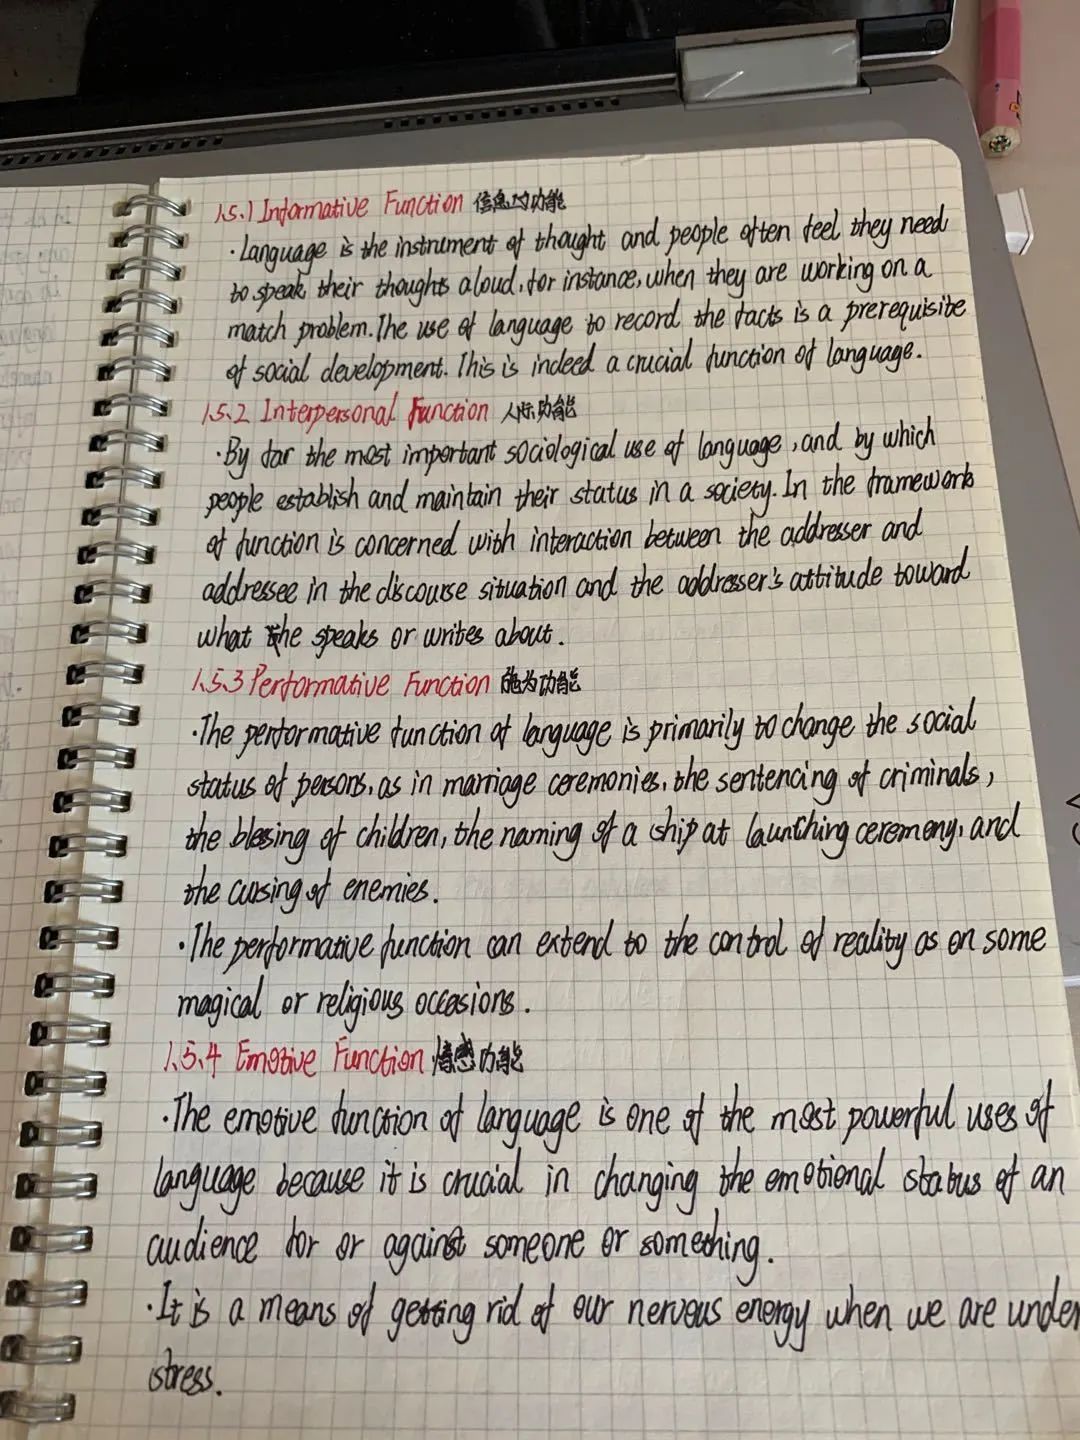 1.5.1 Informative Function 信息功能
·Language is the instrument of thought and people often feel they need
to speak their thoughts aloud, for instance, when they are working on a
match problem. The use of language to record the facts is a prerequisite
of social development. This is indeed a crucial function of language.
1.5.2 Interpersonal Function 人际功能
·By far the most important sociological use of language, and by which
people establish and maintain their status in a society. In the framework
of function is concerned with interaction between the addresser and
addressee in the discourse situation and the addresser's attitude toward
what he speaks or writes about.
1.5.3 Performative Function 施为功能
·The performative function of language is primarily to change the social
status of persons, as in marriage ceremonies, the sentencing of criminals,
the blessing of children, the naming of a ship at launching ceremony, and
the cursing of enemies.
·The performative function can extend to the control of reality as on some
magical or religious occasions.
1.5.4 Emotive Function 情感功能
·The emotive function of language is one of the most powerful uses of
language because it is crucial in changing the emotional status of an
audience for or against someone or something.
·It is a means of getting rid of our nervous energy when we are under
stress.